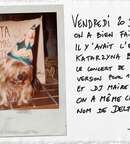 TA
VENDREDI 20 J
ON A BIEN FAI
IL Y'AVAIT L'E
KATARZYNA B
LE CONCERT DE
VERSON POUR 1
ET DJ MAIRE
ON A MÊME C
NOM DE DELP